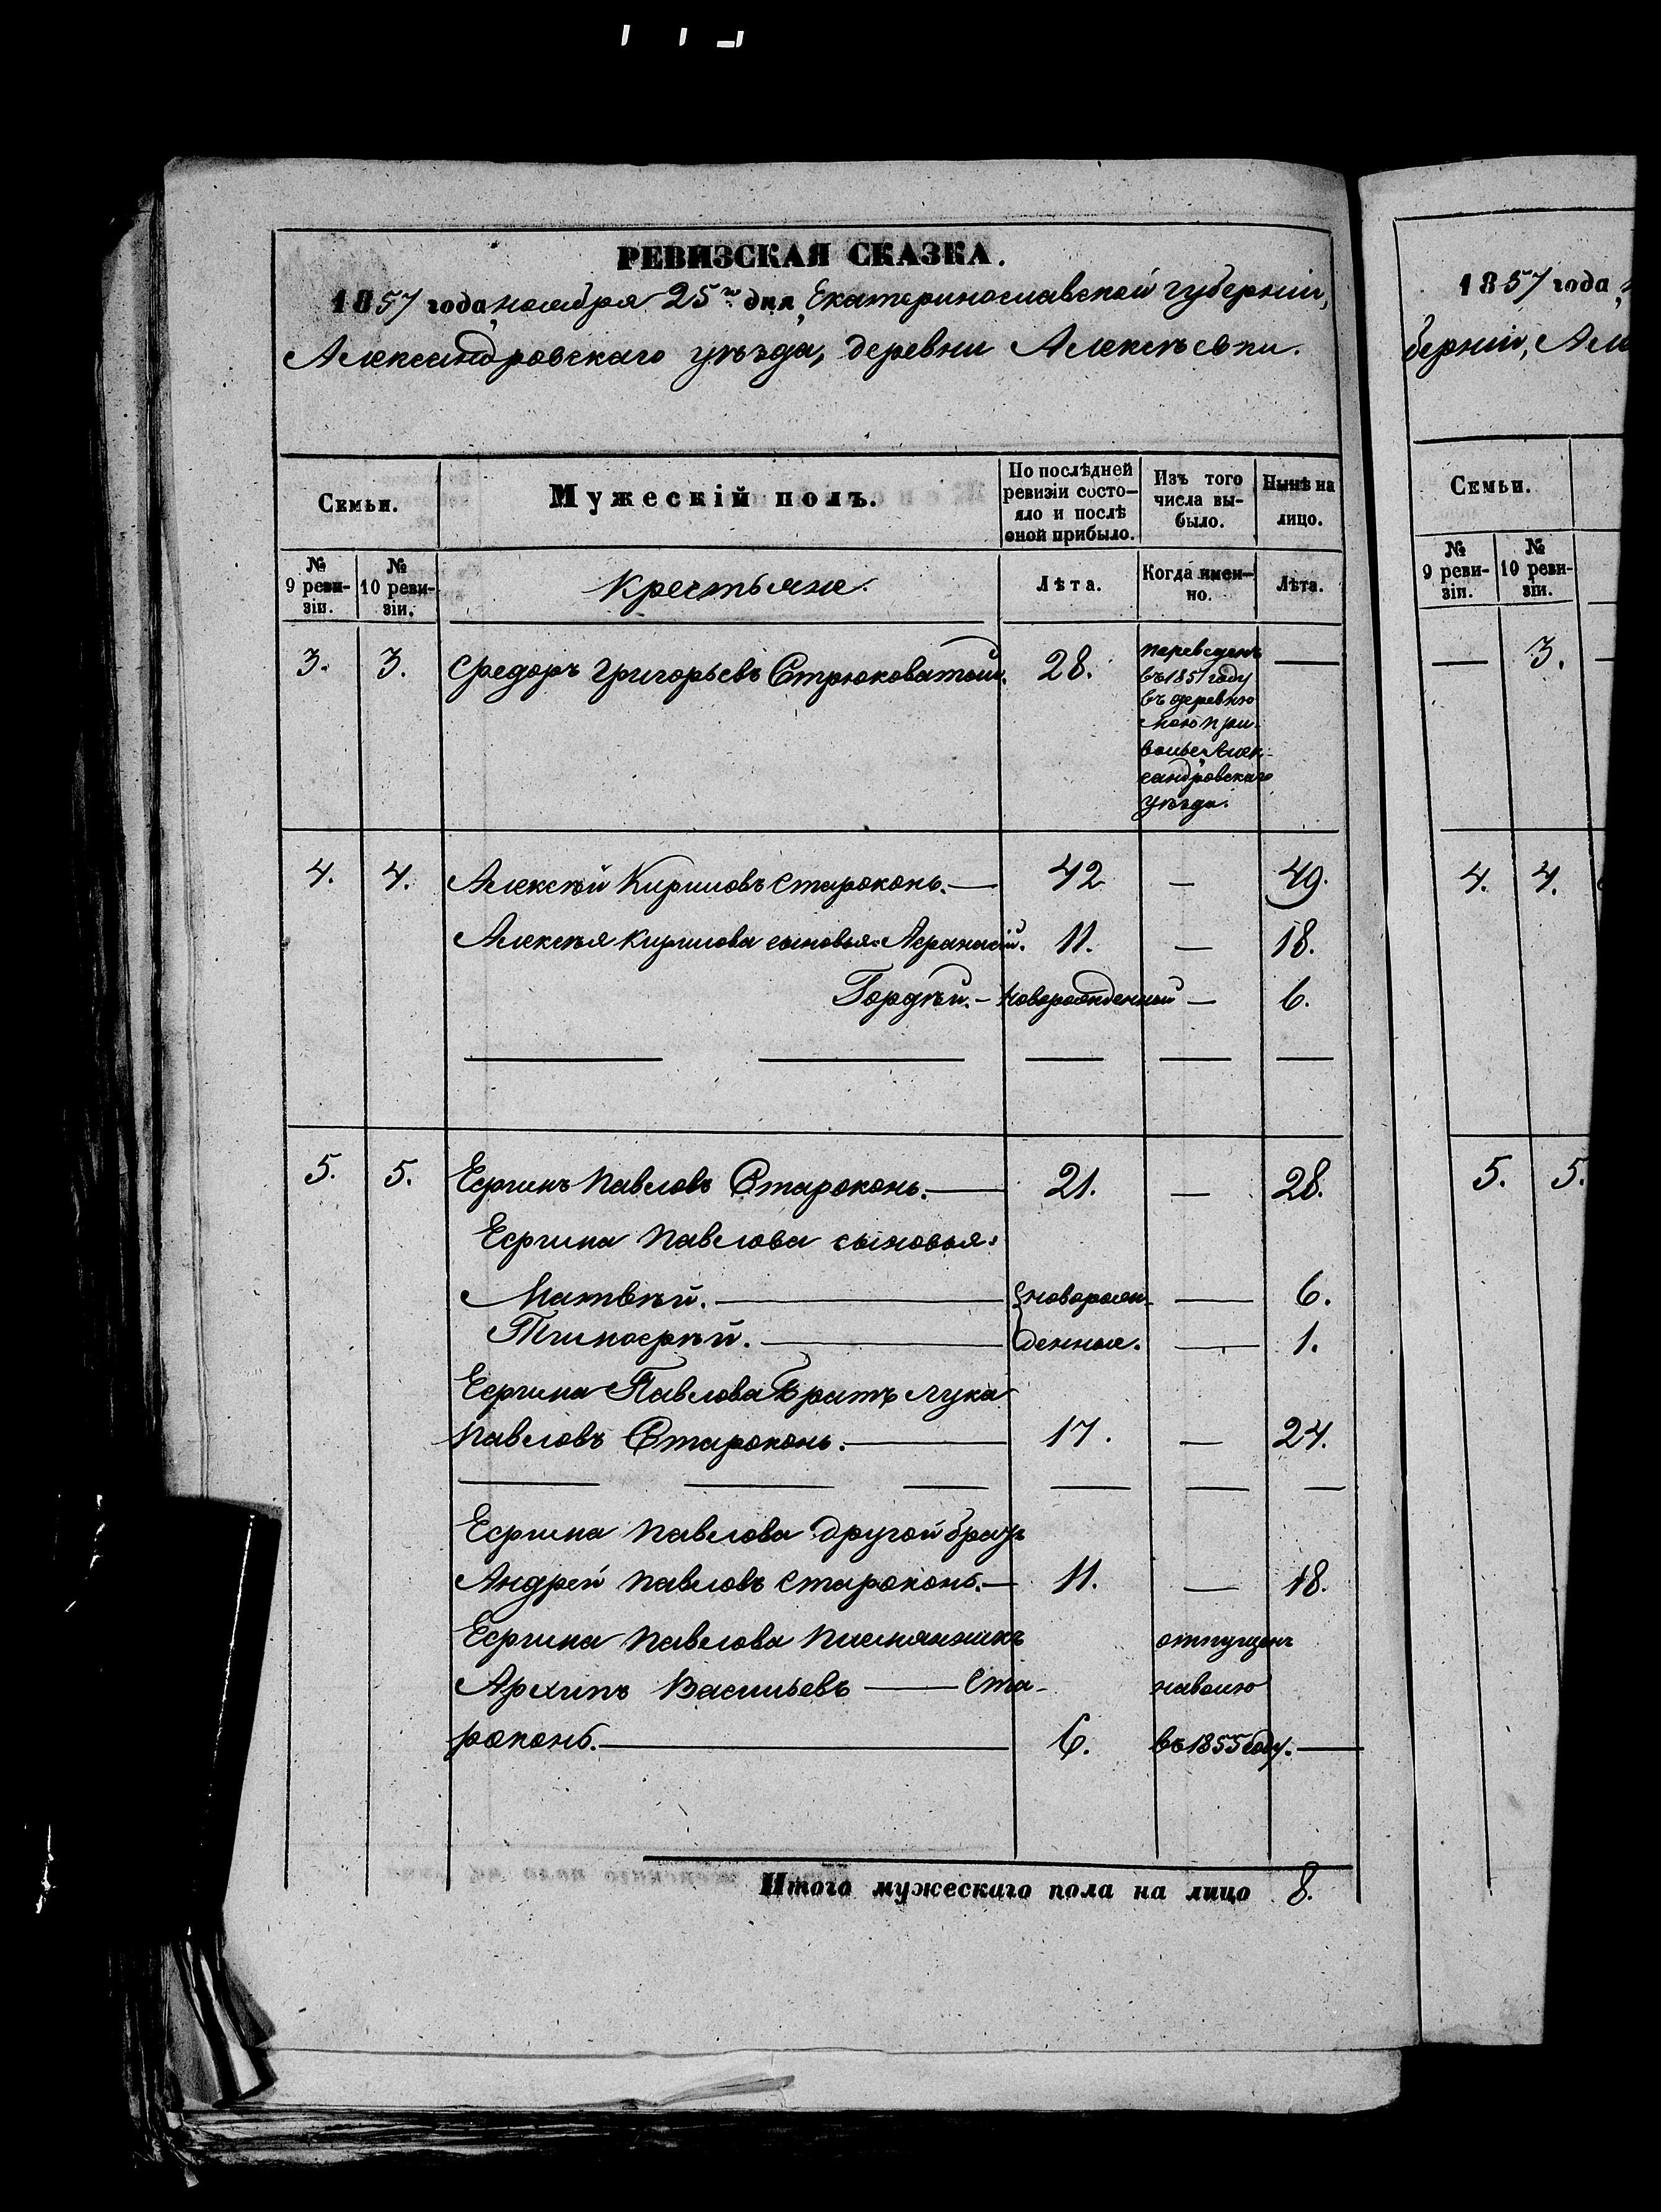 РЕВИЗСКАЯ СКАЗКА.
1857 года, ноября 25го дня, Екатеринославской губерніи,
Александровскаго уѣзда, деревни Алексѣевки.
Семьи.
Мужескій полъ.
По послѣдней ревизіи состо-
яло и послѣ оной прибыло.
Изъ того числа вы-
было.
Нынѣ на лицо.
№ 9 реви-
зіи.
№ 10 реви-
зіи.
Крестьяне.
Лѣта.
Когда имен-
но.
Лѣта.
3. 3. Ѳедоръ Григорьевъ Стрюковатый. 28. —
переведенъ
въ 1851 году
въ деревню
волье, Алек-
сандровскаго
уѣзда.
4. 4. Алексѣй Кириловъ Староконь. — 42 — 49.
Алексѣя Кирилова сыновья: Аѳанасій. 11. — 18.
Гордѣй. — новорожденный — 6.
5. 5. Ефимъ Павловъ Староконь. — 21. — 28.
Ефима Павлова сыновья:
Матвѣй. — новорож- — 6.
Тимоѳѣй. — денные. — 1.
Ефима Павлова братъ Лука
Павловъ Староконь. — 17. — 24.
Ефима Павлова другой братъ
Андрей Павловъ Староконь. — 11. — 18.
Ефима Павлова племянникъ отпущенъ
Архипъ Васильевъ — Ста- наволю
роконь. — 6. въ 1855 году. —
Итого мужескаго пола на лицо 8.
1857 года
берніи, Але
Семьи.
№ 9 реви-
зіи.
№ 10 реви-
зіи.
— 3. —
4. 4.
5. 5.